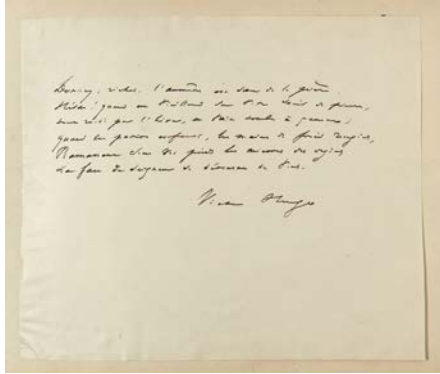 Donnez, riches! l'aumône est sœur de la prière.
Hélas! quand un vieillard sur votre seuil de pierre,
tout roidi par l'hiver, en vain tombe à genoux;
quand les petits enfants, les mains de froid rougies,
Ramassent sous vos pieds les miettes des orgies,
La face du Seigneur se détourne de vous.
Victor Hugo